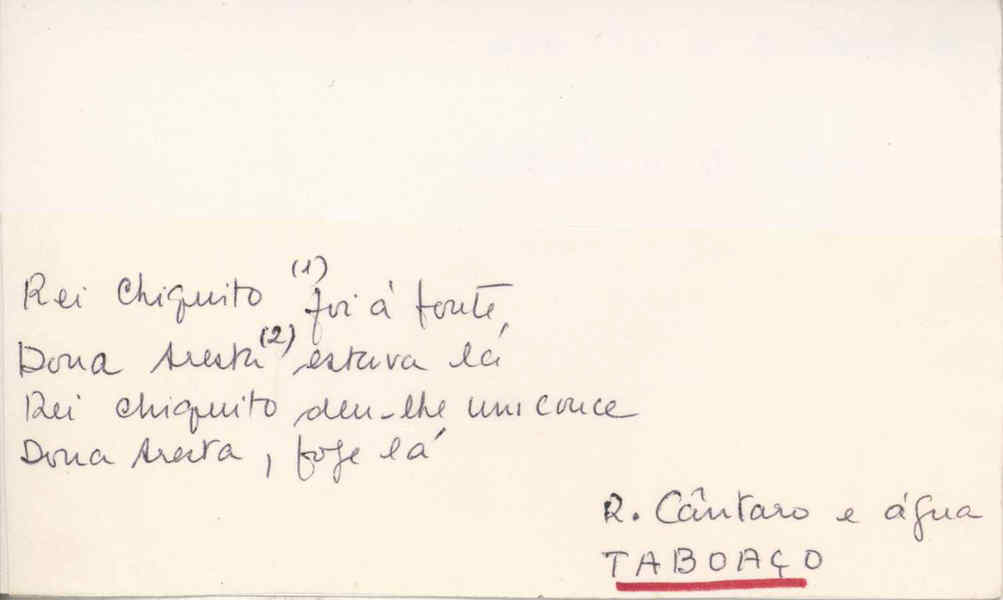 Rei Chiquito (1) foi á fonte,
Dona Aresta (2) estava lá
Rei chiquito deu-lhe um couce
Dona Aresta, foge lá
R. Cântaro e água
TABOAÇO